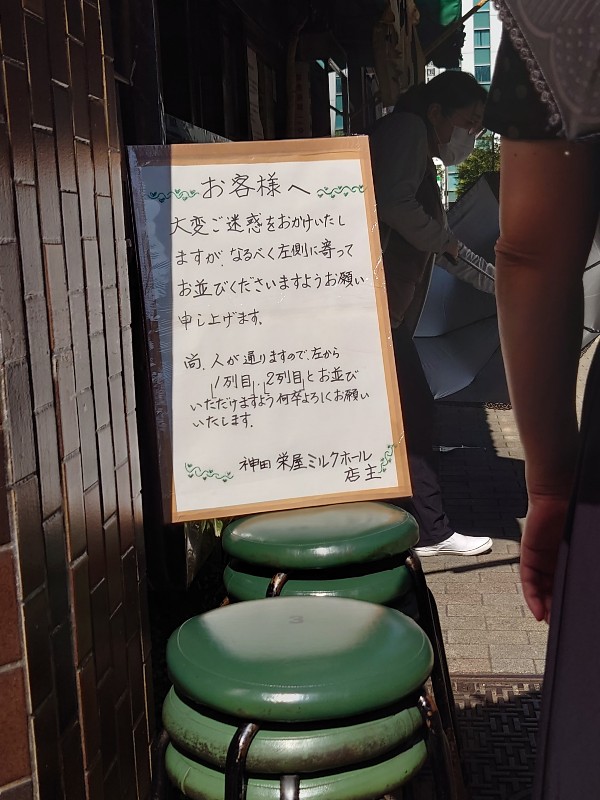 お客様へ
大変ご迷惑をおかけいたし
ますが、なるべく左側に寄って
お並びくださいますようお願い
申し上げます。
尚、人が通りますので、左から
1列目、2列目とお並び
いただけますよう何卒よろしくお願い
いたします。
神田 栄屋ミルクホール
店主
3